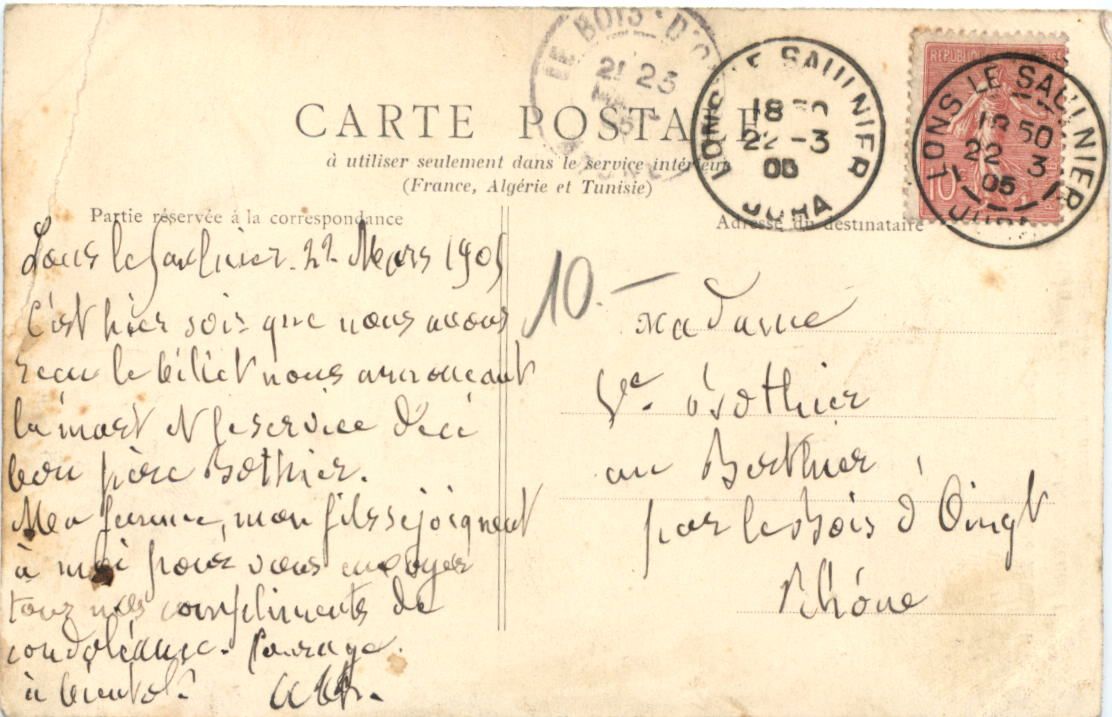 CARTE POSTALE
à utiliser seulement dans le service intérieur
(France, Algérie et Tunisie)
Partie réservée à la correspondance
Adresse du destinataire
LE BOIS-D'O
21 23
5
LONS LE SAUNIER
18 50
22 -3
05
JURA
LONS LE SAUNIER
18 50
22 3
05
JURA
10
10.-
Lons le Saulnier. 22 Mars 1905
C'est hier soir que nous avons
recu le billet nous annoncant
la mort et le service d'ici
bon père Bothier.
Ma femme, mon fils se joignent
à moi pour vous envoyer
tous nos compliments de
condoléance. Courage.
à bientot.
Madame
Ve. Bothier
au Berthier
par le Bois d'Oingt
Rhône